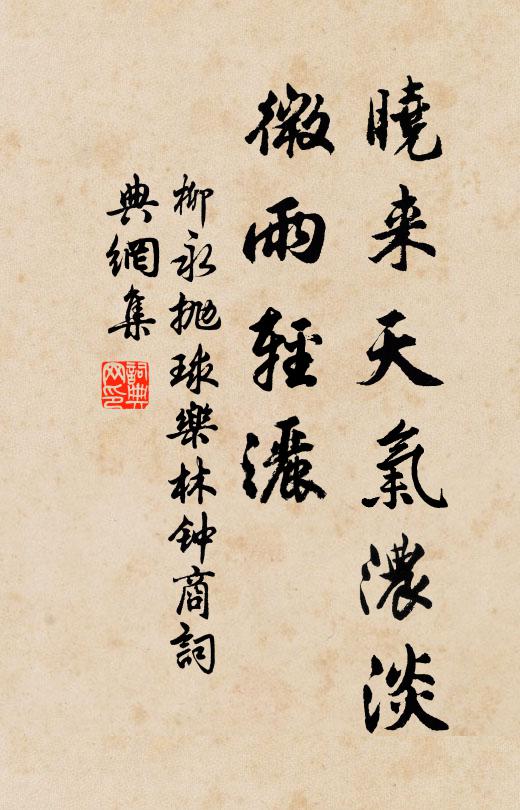 曉来天氣濃淡
微雨輕灑
柳永抛球樂林钟商詞
典網集
詞典網印